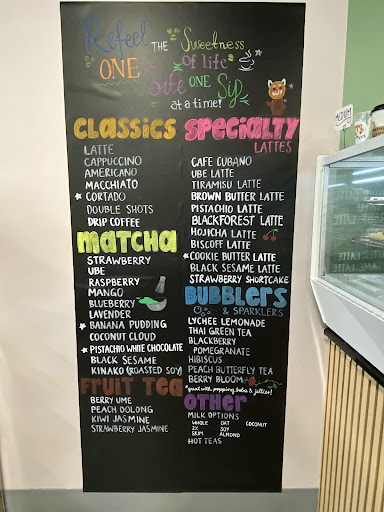 Refeel THE Sweetness
ONE of life
Bite ONE Sip
at a time!
CLASSICS
LATTE
CAPPUCCINO
AMERICANO
MACCHIATO
CORTADO
DOUBLE SHOTS
DRIP COFFEE
MATCHA
STRAWBERRY
UBE
RASPBERRY
MANGO
BLUEBERRY
LAVENDER
BANANA PUDDING
COCONUT CLOUD
PISTACHIO WHITE CHOCOLATE
BLACK SESAME
KINAKO (ROASTED SOY)
FRUIT TEA
BERRY UME
PEACH OOLONG
KIWI JASMINE
STRAWBERRY JASMINE
SPECIALTY
LATTES
CAFE CUBANO
UBE LATTE
TIRAMISU LATTE
BROWN BUTTER LATTE
PISTACHIO LATTE
BLACKFOREST LATTE
HOJICHA LATTE
BISCOFF LATTE
COOKIE BUTTER LATTE
BLACK SESAME LATTE
STRAWBERRY SHORTCAKE
BUBBLERS
& SPARKLERS
LYCHEE LEMONADE
THAI GREEN TEA
BLACKBERRY
POMEGRANATE
HIBISCUS
PEACH BUTTERFLY TEA
BERRY BLOOM
*great with popping boba & jellies!
OTHER
MILK OPTIONS
WHOLE OAT COCONUT
2% SOY
SKIM ALMOND
HOT TEAS